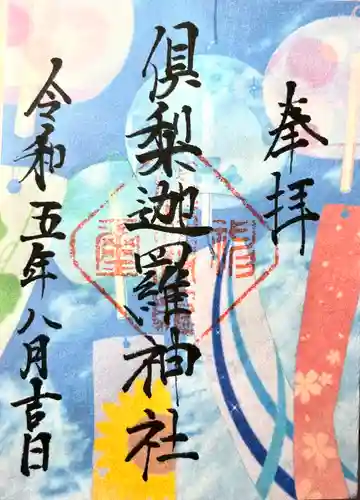 奉拝
倶梨迦羅神社
令和五年八月吉日